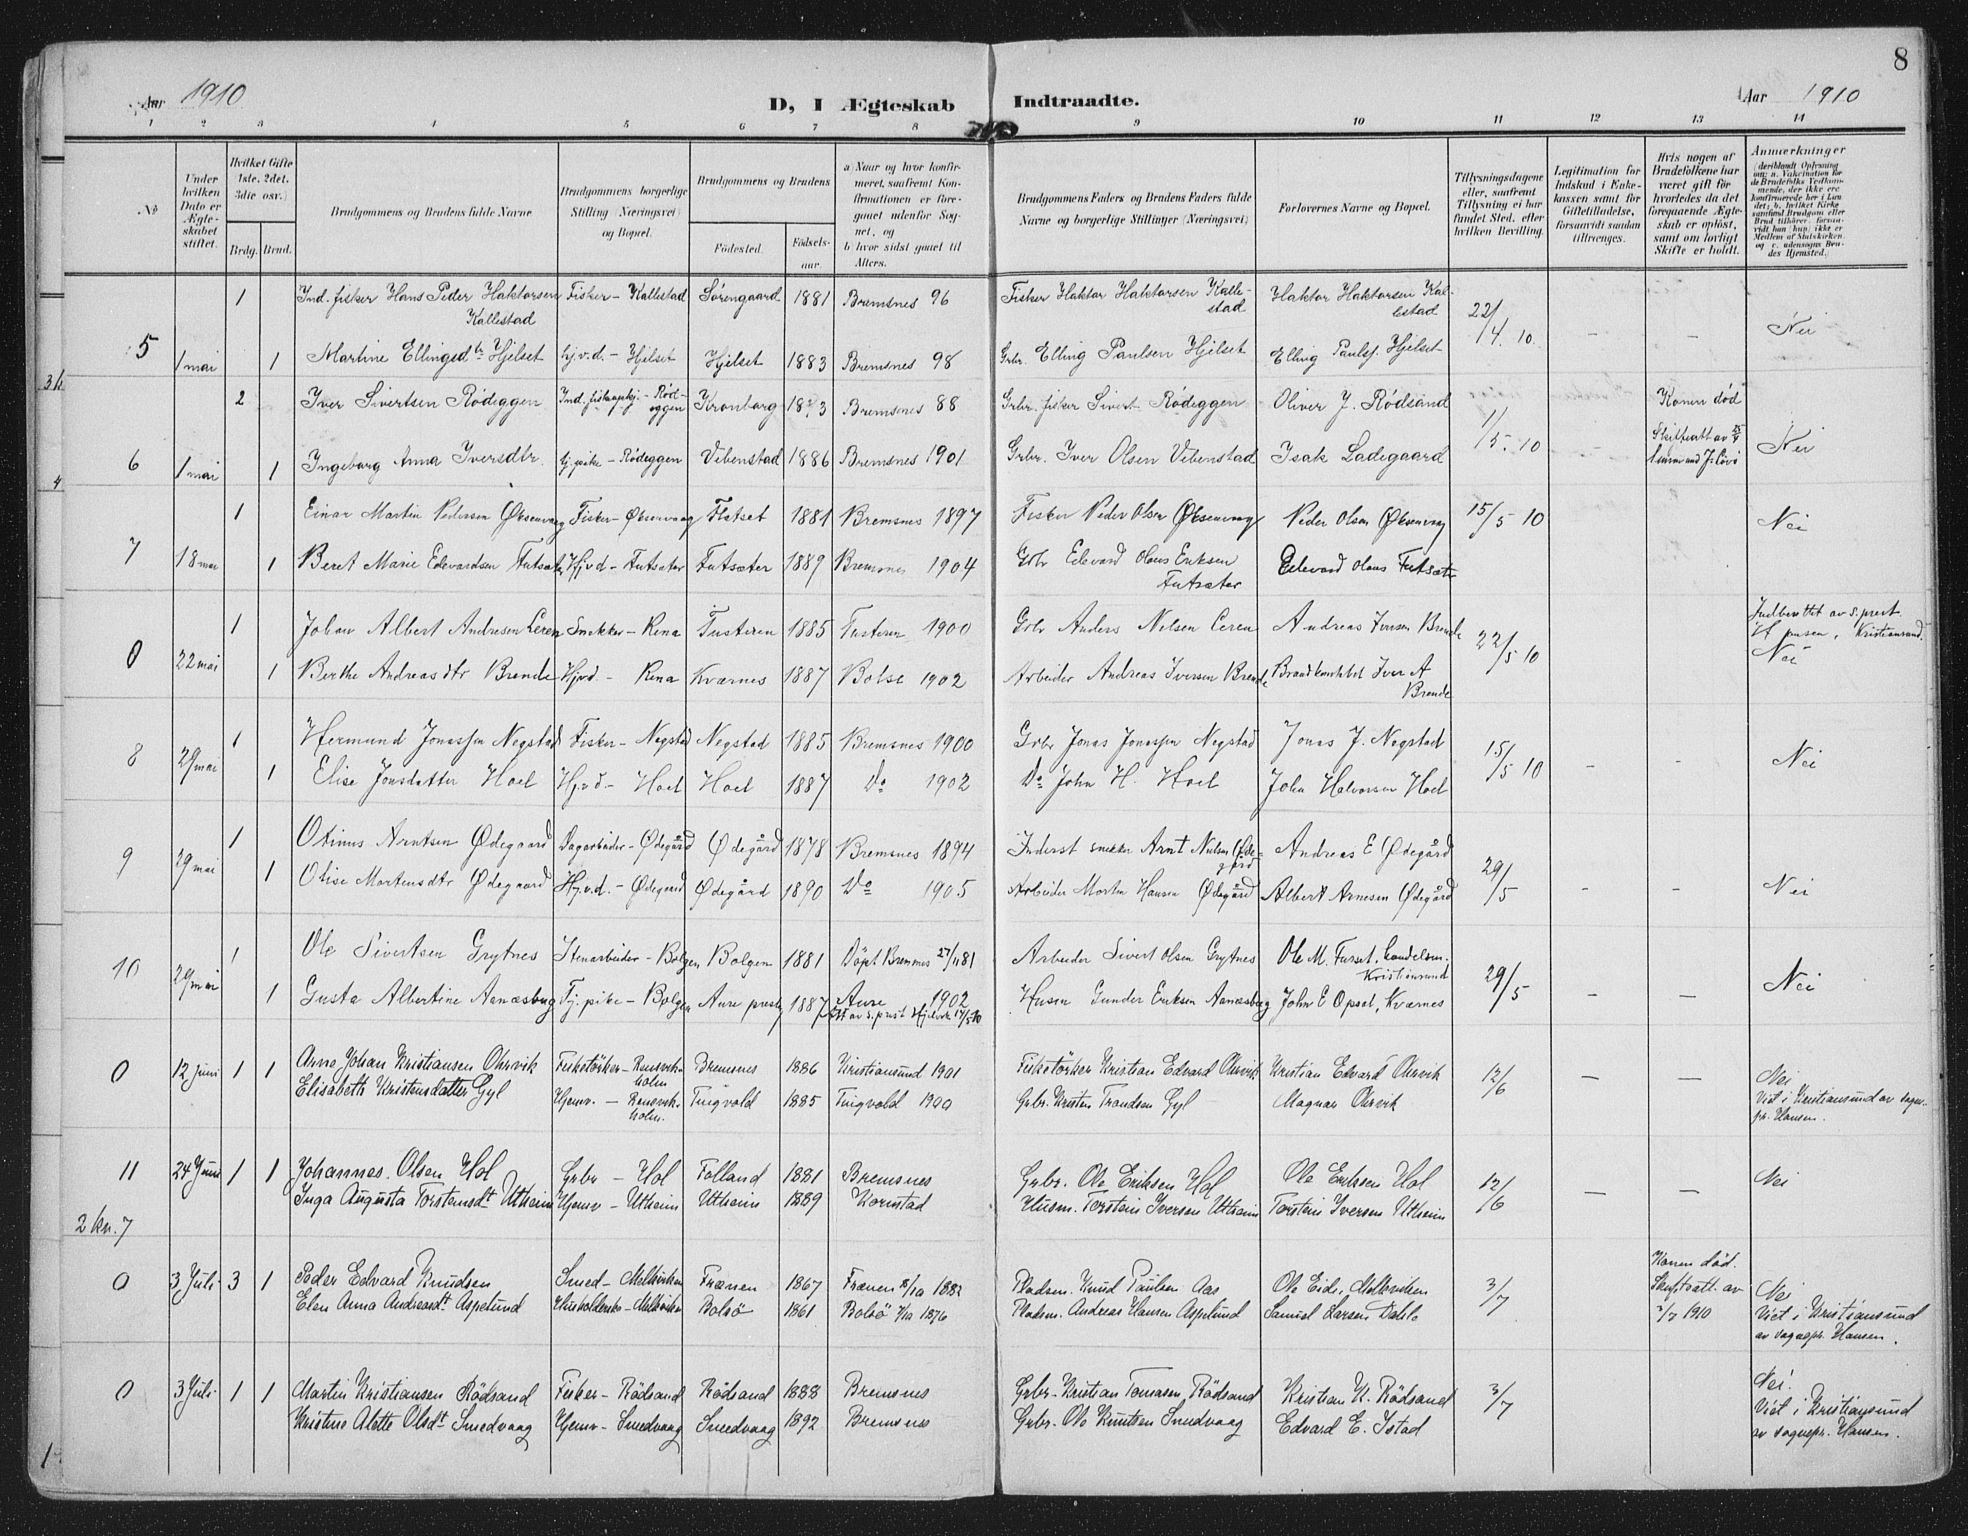 8
Aar 1910 D, I Ægteskab Indtraadte. Aar 1910
1 2 3 4 5 6 7 8 9 10 11 12 13 14
No
Under hvilken Dato er Ægteskabet stiftet.
Hvilket Gifte 1ste, 2det, 3die osv.)
Brdg. Brud.
Brudgommens og Brudens fulde Navne
Brudgommens borgerlige Stilling (Næringsvei) og Bopæl.
Brudgommens og Brudens
Fødested. Fødselsaar.
a) Naar og hvor konfirmeret, saafremt Konfirmationen er foregaaet udenfor Sognet, og
b) hvor sidst gaaet til Alters.
Brudgommens Faders og Brudens Faders fulde Navne og borgerlige Stillinger (Næringsvei)
Forlovernes Navne og Bopæl.
Tillysningsdagene eller, saafremt Tillysning ei har fundet Sted, efter hvilken Bevilling.
Legitimation for Indskud i Enkekassen samt for Giftetilladelse, forsaavidt saadan tiltrænges.
Hvis nogen af Brudefolkene har været gift før hvorledes da det foregaaende Ægteskab er opløst, samt om lovligt Skifte er holdt.
Anmærkninger
(deriblandt Oplysning om: a. Vakcination for de Brudefolks Vedkommende, der ikke ere konfirmerede her i Landet; b. hvilket Kirkesamfund Brudgom eller Brud tilhører, forsaavidt han (hun) ikke er Medlem af Statskirken og c. udensogns Brudes Hjemsted.)
1 Ind. fisker Hans Peder Haktorsen Kallestad Fisker - Kallestad Sørengaard 1881 Bremsnes 96 Fisker Haktor Haktorsen Kallestad Haktor Haktorsen Kallestad 22/4. 10 Nei
5 1 mai 1 Martine Ellingsdtr Hjelset hj.v.d. - Hjelset Hjelset 1883 Bremsnes 98 Grbr. Elling Paulsen Hjelset Elling Paulsf. Hjelset
2 Iver Sivertsen Rødeggen Rødeggen Kronborg Bremsnes 88 Grbr. fisker Sivert Rødeggen Oliver J. Rødsand 1/5. 10 Konen død
6 1 mai 1 Ingeborg Anna Iversdtr. Rødeggen Vebenstad 1886 Bremsnes 1901 Grbr. Iver Olsen Vebenstad Isak Ladegaard Skifteatt av Nei
1 Einar Martin Pedersen Øksenvaag Fisker - Øksenvaag Flatset 1881 Bremsnes 1897 Fisker Peder Olsen Øksenvag Peder Olsen Øksenvag 15/5 10 Nei
7 18 mai 1 Beret Marie Edevardsen Futsæter Hj.v.d - Futsæter Futsæter 1889 Bremsnes 1904 Gbr Edevard Olaus Eriksen Futsæter Edevard Olaus Futsæter
1 Johan Albert Andresen Leren Snekker - Rena Tusteren 1885 Tusteren 1900 Gbr Anders Nilsen Leren Andreas Iversen Brende 22/5 10 Indberettet av s. prest Kristiansund.
0 22 mai 1 Berthe Andreasdtr Brende Hjvd - Rena Kværnes 1887 Bolsø 1902 Arbeider Andreas Iversen Brende Iver A Brende Nei
1 Hermund Jonassen Negstad Fisker - Negstad Negstad 1885 Bremsnes 1900 Gbr Jonas Jonassen Negstad Jonas J. Negstad 15/5 10 Nei
8 29 mai 1 Elise Jonsdatter Hoel Hj.v.d. - Hoel Hoel 1887 Do 1902 Do John H. Hoel John Halvorsen Hoel
1 Otinus Arntsen Ødegaard Dagarbeider - Ødegård Ødegård 1878 Bremsnes 1894 Inderst snekker Arnt Nielsen Ødegård Andreas E Ødegård 29/5 Nei
9 29 mai 1 Otise Mortensdtr Ødegaard Hj.v.d. - Ødegaard Ødegård 1890 Do 1905 Arbeider Morten Hansen Ødegård Albert Arnesen Ødegård
1 Ole Sivertsen Grytnes Stenarbeider - Bolgen Bolgen 1881 Døpt Bremsnes 27/11 81 Arbeider Sivert Olsen Grytnes Ole M. Furset, Kristiansund 29/5 Nei
10 29 mai 1 Gusta Albertine Aanæsbug Tj.pike - Bolgen Aure prestg 1887 Aure 1902 Husm Gunder Eriksen Aanæsbug John E Opset, Kværnes
0 12 Juni 1 1 Arne Johan Kristiansen Ohrvik Fisketørker - Rensvikholm Bremsnes 1886 Kristiansund 1901 Fisketörker Kristian Edvard Ohrvik Kristian Edvard Ohrvik 12/6 Nei
Elisabeth Kristensdatter Gyl Hjemv. - Rensvikholm. Tingvold 1885 Tingvold 1900 Grbr. Kristen Trondsen Gyl Magnar Ohrvik Viet i Kristiansund av sognepr. Hansen.
11 24 Juni 1 1 Johannes Olsen Hol Grbr - Hol Folland 1881 Bremsnes Grbr. Ole Eriksen Hol Ole Eriksen Hol 12/6 Nei
Inga Augusta Torsteinsdt Utheim Hjemv - Utheim Utheim 1889 Kornstad Husm. Torstein Iversen Utheim Torstein Iversen Utheim
2 kn. 7
0 3 Juli 3 1 Peder Edvard Knudsen Smed - Melkviken Frænen 1867 Frænen 8/10 1882 Pladsm. Knud Paulsen Aas Ole Eid, Melkviken 3/7 Konen død. Skifteatt. av 2/7 1910 Nei
Elen Anna Andreasdt Aspelund Husholderske - Melkviken Bolsö 1861 Bolsö 1876 Pladsm. Andreas Hansen Aspelund Samuel Larsen Dahle Viet i Kristiansund av sognepr. Hansen.
0 3 Juli 1 1 Martin Kristiansen Rödsand Fisker - Rödsand Rödsand 1888 Bremsnes Grbr. Kristian Tomasen Rödsand Kristian K. Rödsand 3/7 Nei.
Kristine Alette Olsdt Smedvaag Hjemv - Smedvaag Smedvaag 1892 Bremsnes Grbr. Ole Knutsen Smedvaag Edvard E. Istad Viet i Kristiansund av sognepr. Hansen.